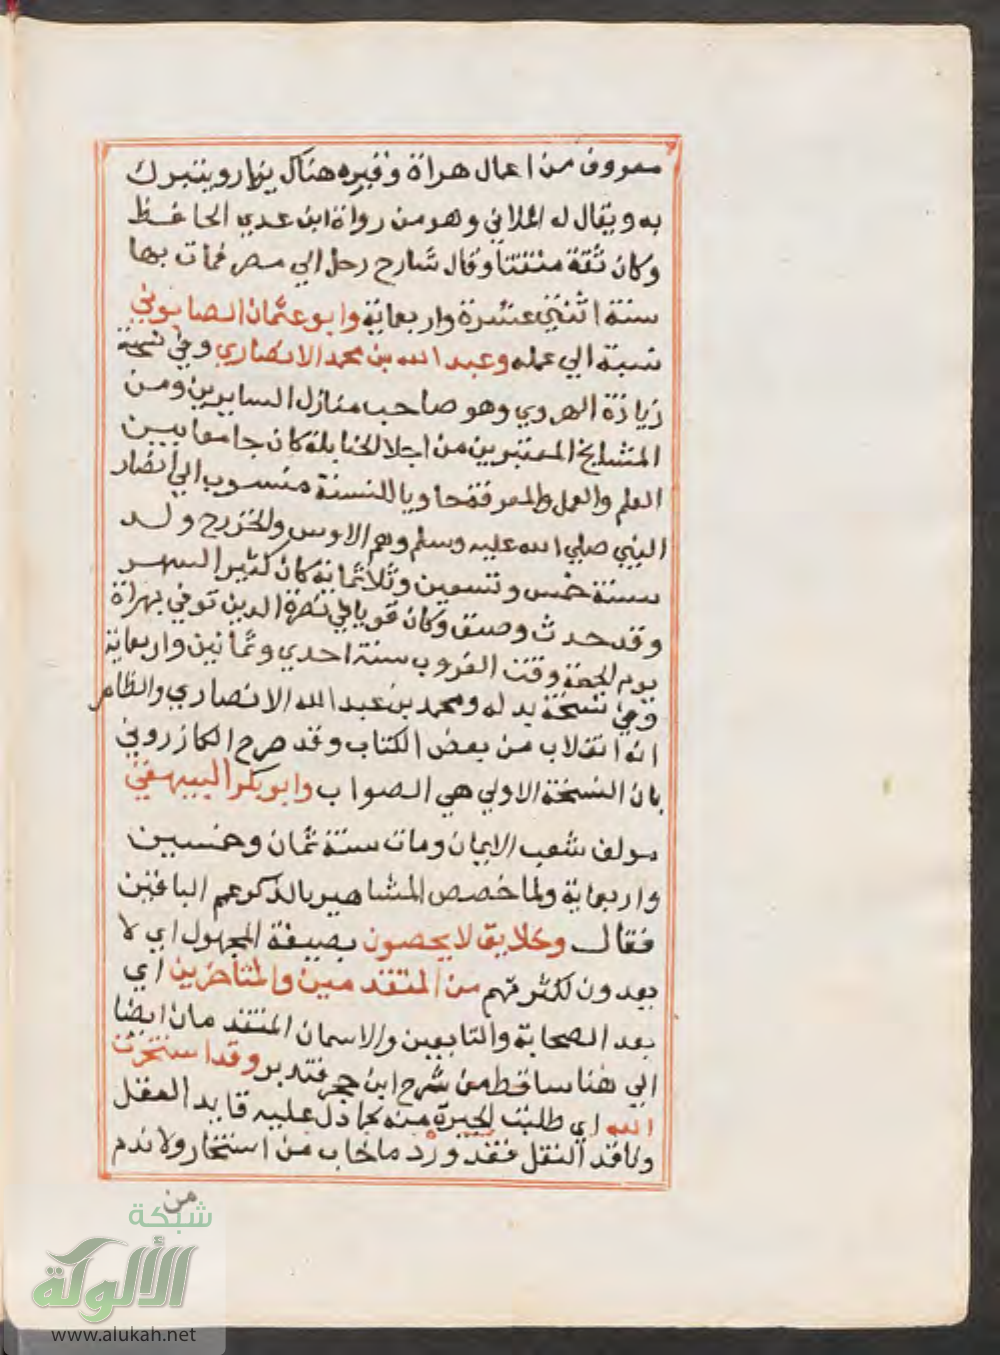 معروف من اعمال هراة وقبره هناك يزار ويتبرك
به ويقال له الملاني وهو من رواة ابن عدي الحافظ
وكان ثقة متقنا وقال شارح رحل الي مصر فمات بها
سنة اثنتي عشرة واربعماية وابو عثمان الصابوني
نسبة الي عمله وعبد الله بن محمد الانصاري وفي نسخة
زيادة الهروي وهو صاحب منازل السايرين ومن
المشايخ المعتبرين من اجلا الحنابلة كان جامعا بين
العلم والعمل والمعرفة حاويا للسنة منسوب الي انصار
النبي صلي الله عليه وسلم وهم الاوس والخزرج ولد
سنة خمس وتسعين وثلاثماية كان كثير السهر
وقد حدث وصنف وكان قويا في نصرة الدين توفي بهراة
يوم الجمعة وقت الغروب سنة احدي وثمانين واربعماية
وفي نسخة بدله ومحمد بن عبد الله الانصاري والظاهر
انه انقلاب من بعض الكتاب وقد صرح الكازروني
بان النسخة الاولي هي الصواب وابو بكر البيهقي
مولف شعب الايمان ومات سنة ثمان وخمسين
واربعماية ولما خصص المشاهير بالذكر عم الباقين
فقال وخلايق لا يحصون بصيغة المجهول اي لا
يعدون لكثرتهم من المتقدمين والمتاخرين اي
بعد الصحابة والتابعين والاسمان المتقدمان ايضا
الي هنا ساقط من شرح ابن حجر فتدبر وقد استخرت
الله اي طلبت الخيرة منه لما دل عليه قايد العقل
وناقد النقل فقد ورد ما خاب من استخار ولا ندم
من
شبكة
الألوكة
www.alukah.net